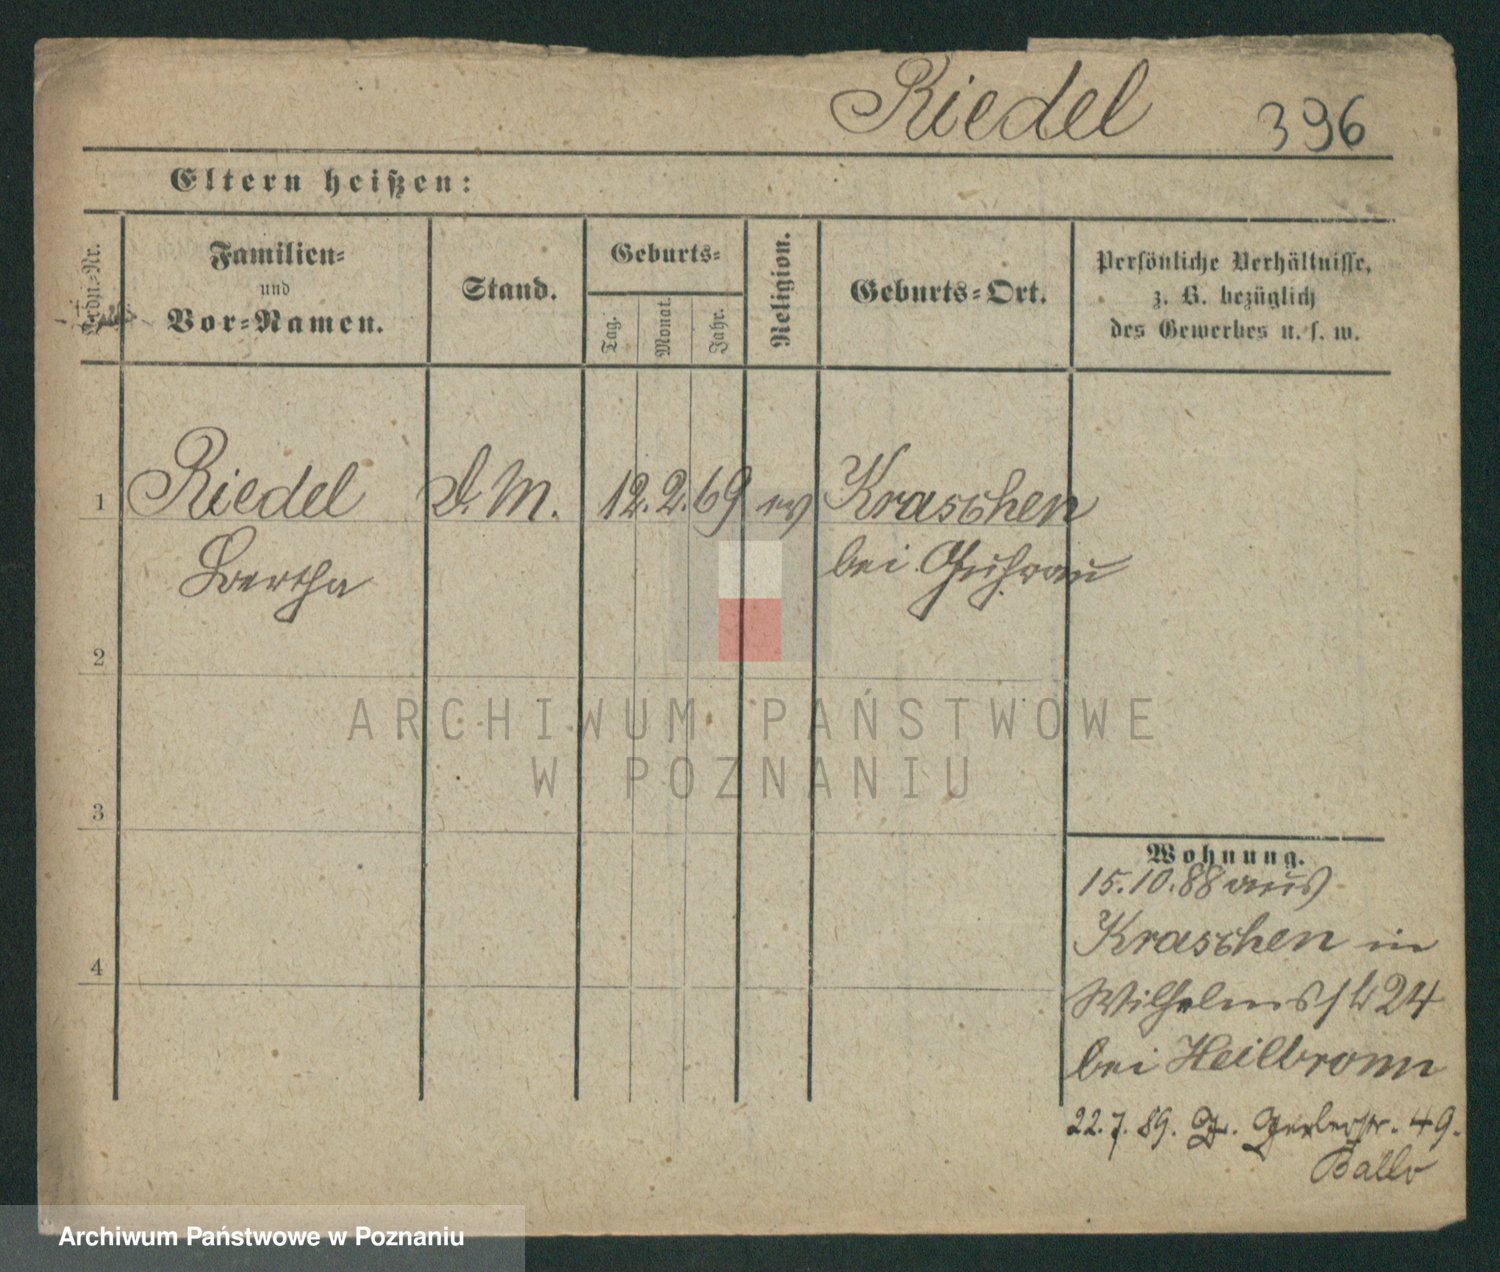 Riedel 396
Eltern heißen:
Ordn.-Nr.
Familien-
und
Vor-Namen.
Stand.
Geburts-
Tag.
Monat.
Jahr.
Religion.
Geburts-Ort.
Persönliche Verhältnisse,
z. B. bezüglich
des Gewerbes u. s. w.
1 Riedel D. M. 12. 2. 69 ev Kraschen
Bertha bei Guhrau
2
3
4
Wohnung.
15.10.88 aus
Kraschen in
Wilhelmstr 24
bei Heilbronn
22. 7. 89. Gerberstr. 49.
Ballo
ARCHIWUM PAŃSTWOWE
W POZNANIU
Archiwum Państwowe w Poznaniu